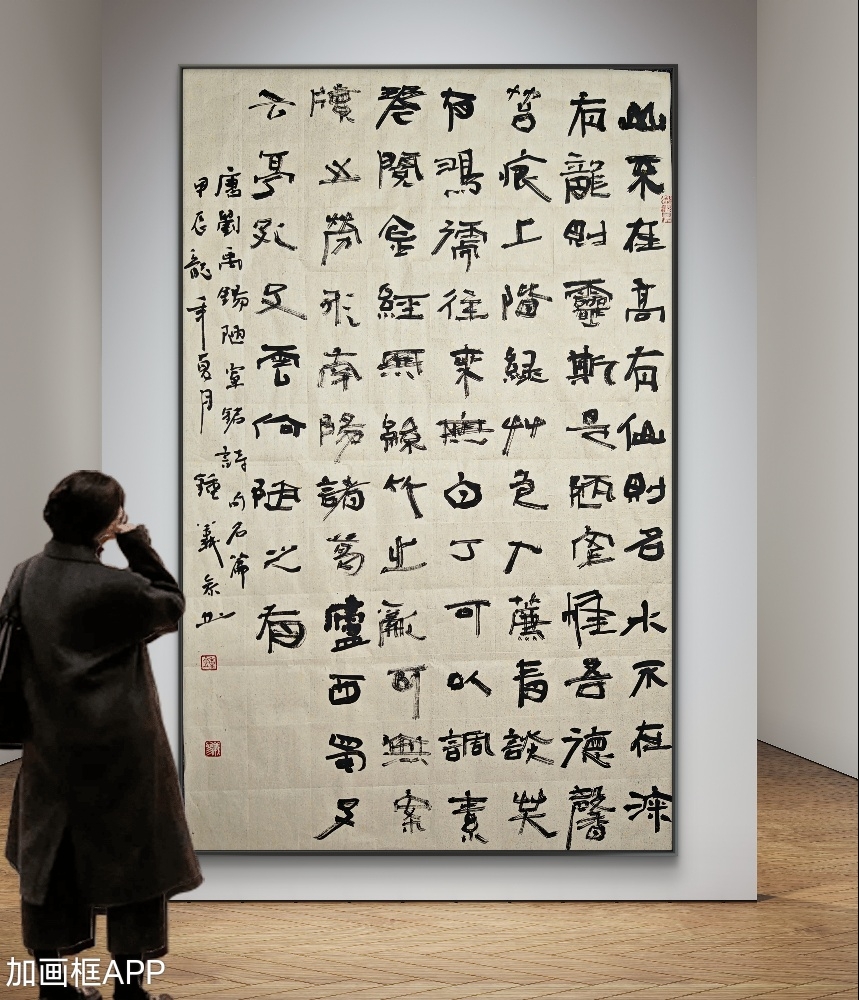 山不在高有仙則名水不在深
有龍則靈斯是陋室惟吾德馨
苔痕上階綠艸色入簾青談笑
有鴻儒往來無白丁可以調素
琴閱金經無絲竹之亂耳無案
牘之勞形南陽諸葛廬西蜀子
云亭孔子雲何陋之有
唐劉禹錫陋室銘詩句名篇
甲辰龍年夏月鍾義
加画框APP